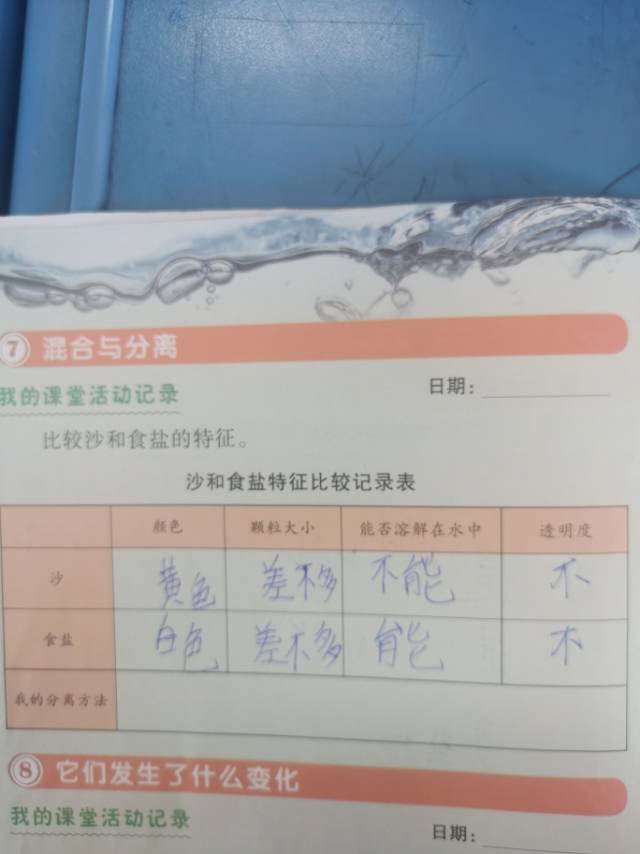 ⑦ 混合与分离
我的课堂活动记录
日期：
比较沙和食盐的特征。
沙和食盐特征比较记录表
颜色 颗粒大小 能否溶解在水中 透明度
沙 黄色 差不多 不能 不
食盐 白色 差不多 能 不
我的分离方法
⑧ 它们发生了什么变化
我的课堂活动记录
日期：